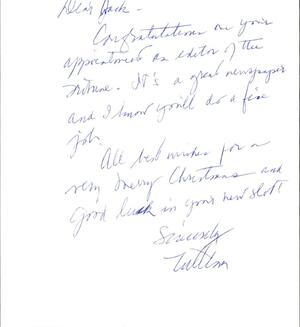 Dear Jack -
Congratulations on your
appointment as editor of the
Tribune. It's a great newspaper
and I know you'll do a fine
job.
All best wishes for a
very merry Christmas and
good luck in your new slot!
Sincerely